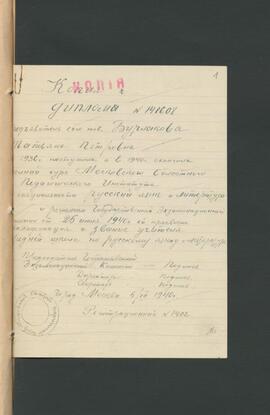 1
Копия
КОПІЯ
Диплома № 141608
Предъявитель сего тов. Бурлакова
Татьяна Петровна
в 1936г. поступила и в 1940г. окончила
полный курс Московского областного
Педагогического Института
по специальности русский язык и литература
и решением Государственной Экзаменационной
комиссии от 26 июня 1940г. ей присвоена
квалификация и звание учителя
средней школы по русскому языку и литературе
Председатель Государственной
Экзаменационной Комиссии — Подпись
Директор — Подпись
Секретарь — Подпись
Город Москва 5/VII 1940г.
Регистрационный № 1402